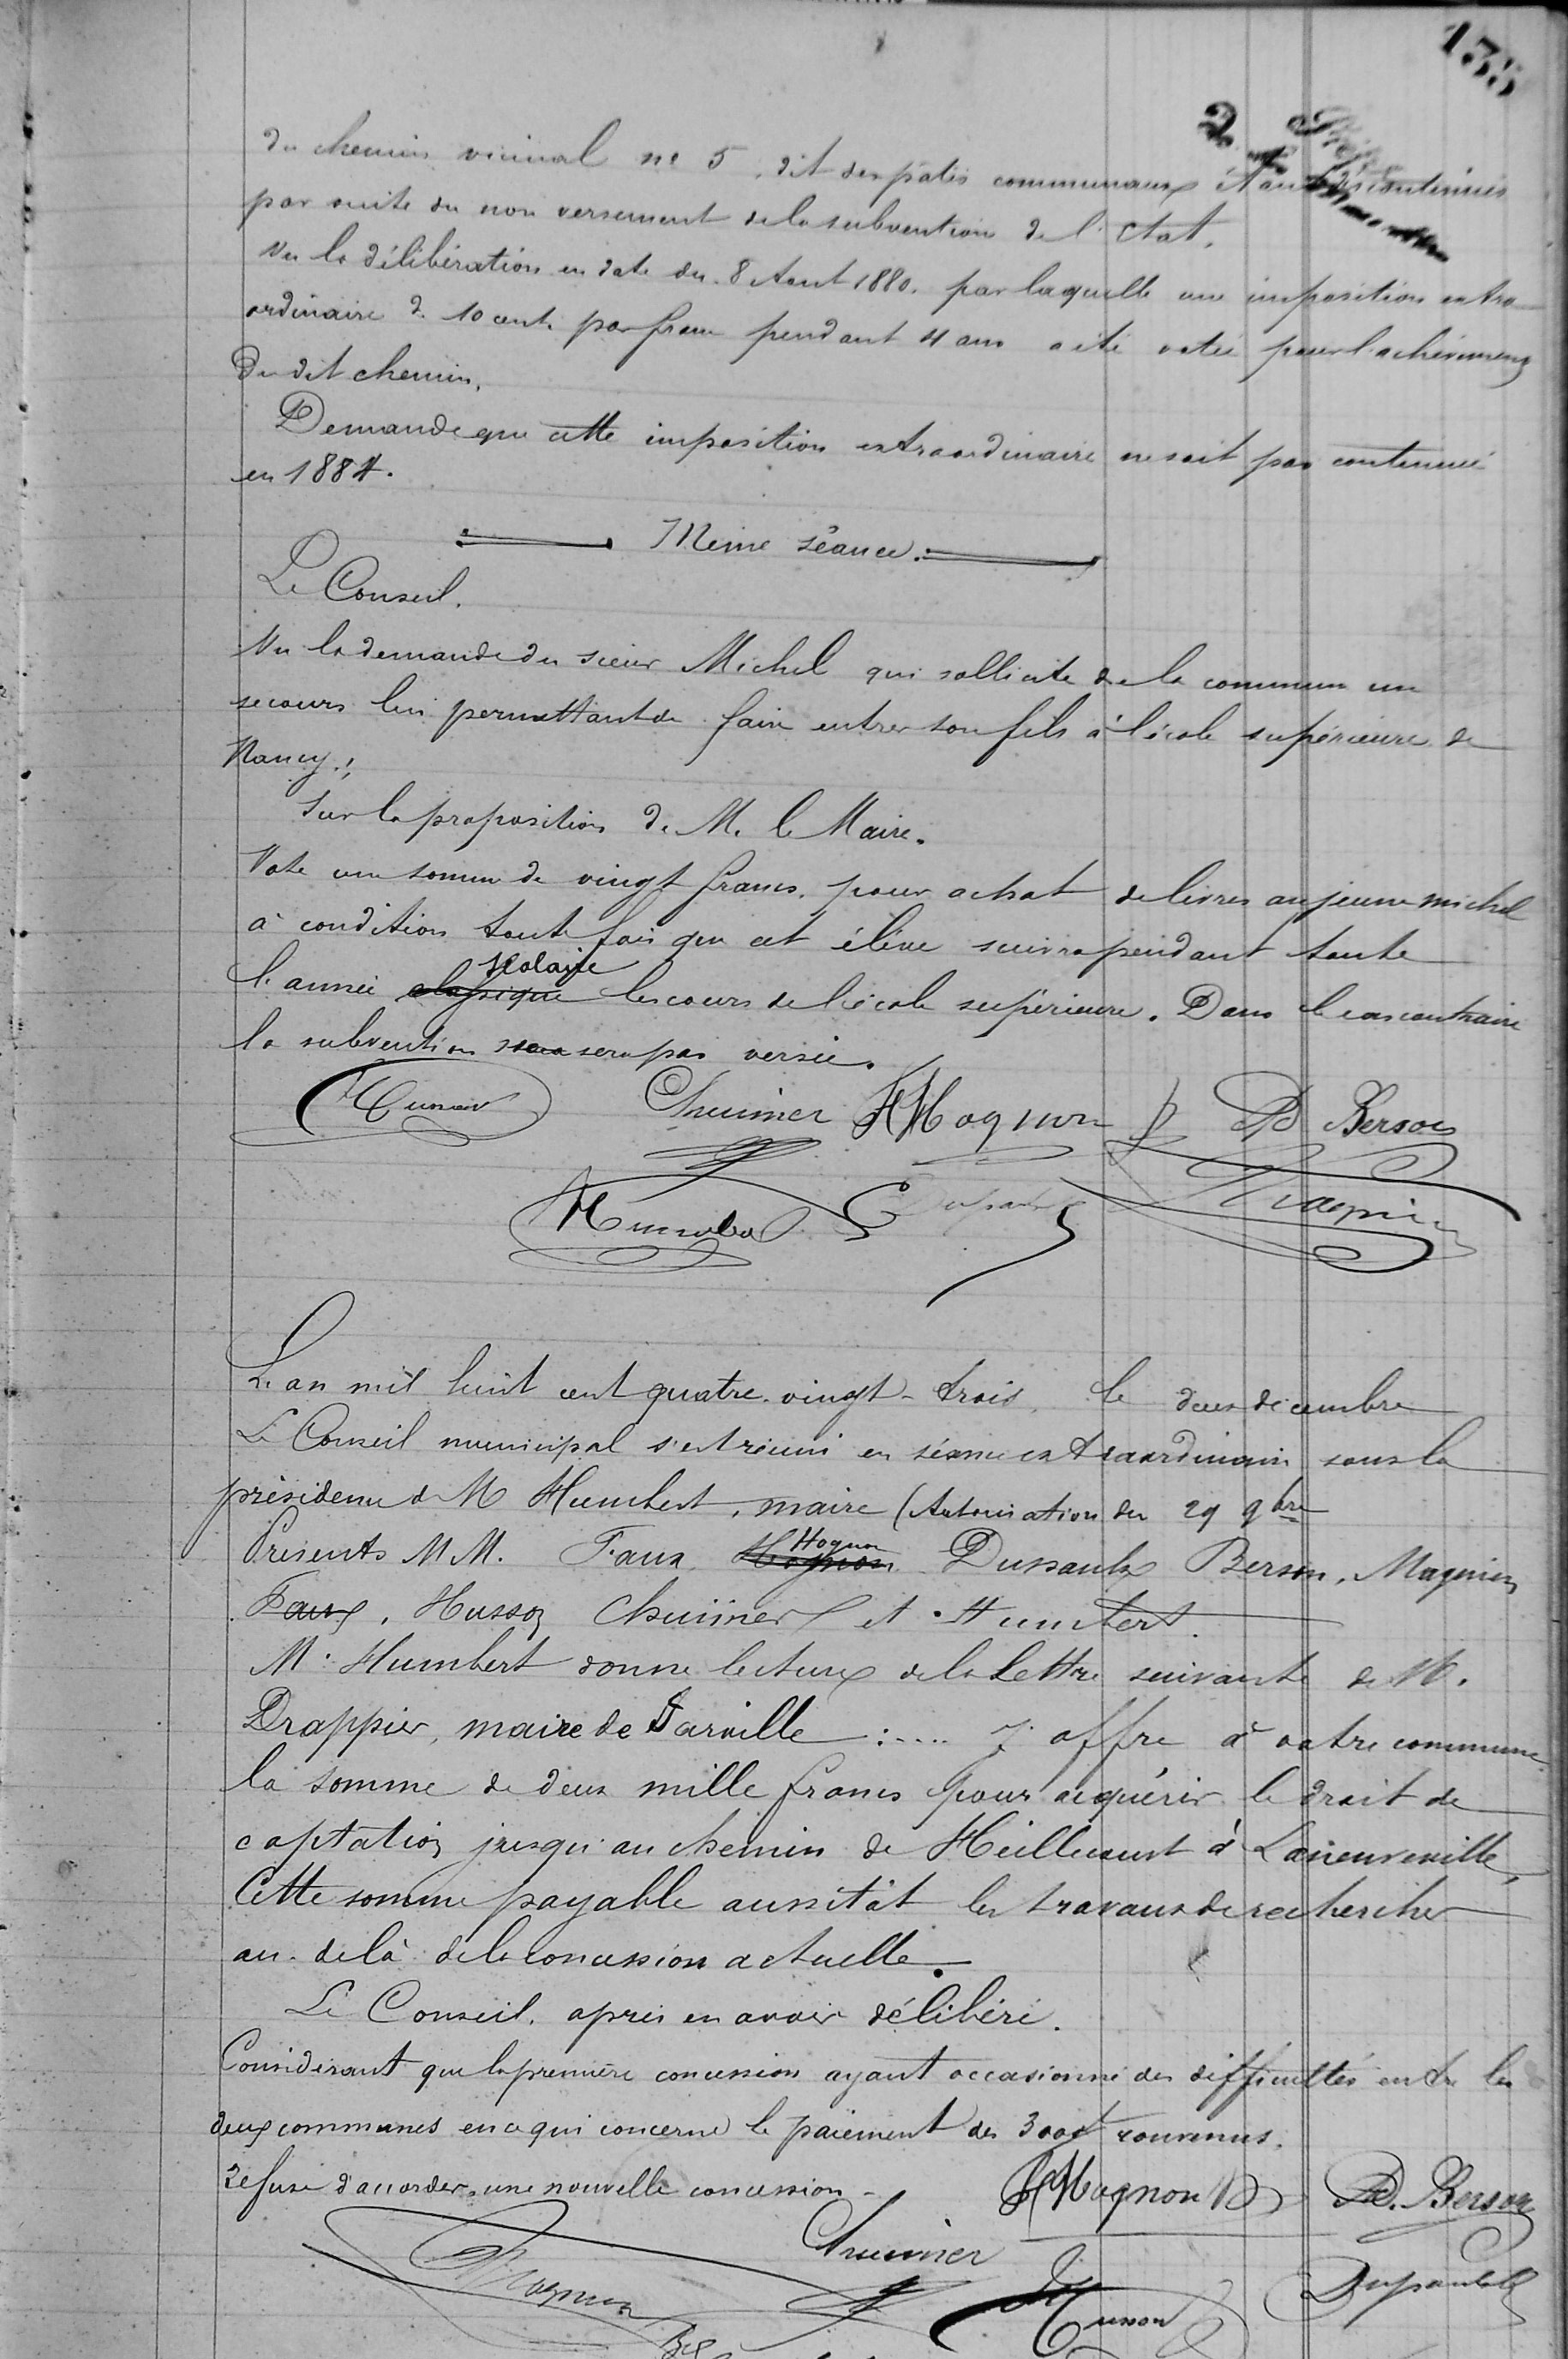 135
du chemin vicinal no 5, dit des patis communaux étant discontinués
par suite du non versement de la subvention de l'Etat,
Vu la délibération en date du 8 Aout 1880. par laquelle une imposition extra
ordinaire de 10 cent. par franc pendant 4 ans a été votée pour l'achèvement
du dit chemin,
Demande que cette imposition extraordinaire ne soit pas continuée
en 1884.
Même séance.
Le Conseil.
Vu la demande du sieur Michel qui sollicite de la commune un
secours lui permettant de faire entrer son fils à l'école supérieure de
Nancy;
Sur la proposition de M. le Maire.
Vote une somme de vingt francs. pour achat de livres au jeune michel
à condition toute fois que cet élève suivra pendant toute
l'année classique scolaire les cours de l'école supérieure. Dans le cas contraire
la subvention sera pas versée.
Husson Chuiiner Hognon D Berson
Humbert Dussaulx Magnien
L'an mil huit cent quatre-vingt-trois, le deux décembre
Le Conseil municipal s'est réuni en séance extraordinaire sous la
présidence de M Humbert, maire (Autorisation du 29 9bre
Présents MM. Faux, Hognon Hognon Dussaulx Berson, Magnien
Faux, Husson Chuiiner et Humbert.
M. Humbert donne lecture de la lettre suivante de M.
Drappier, maire de Jarville :.... J'offre à votre commune
la somme de deux mille francs pour acquérir le droit de
captation jusqu'au chemin de Heillecourt à Laneuveville,
Cette somme payable aussitôt les travaux de recherches
au-delà de la concession actuelle.
Le Conseil, après en avoir délibéré.
Considérant que la première concession ayant occasionné des difficultés entre les
deux communes en ce qui concerne le paiement des 3000f convenus.
Refuse d'accorder une nouvelle concession -
Hognon D. Berson
Chuiiner
Magnien Husson Dussaulx